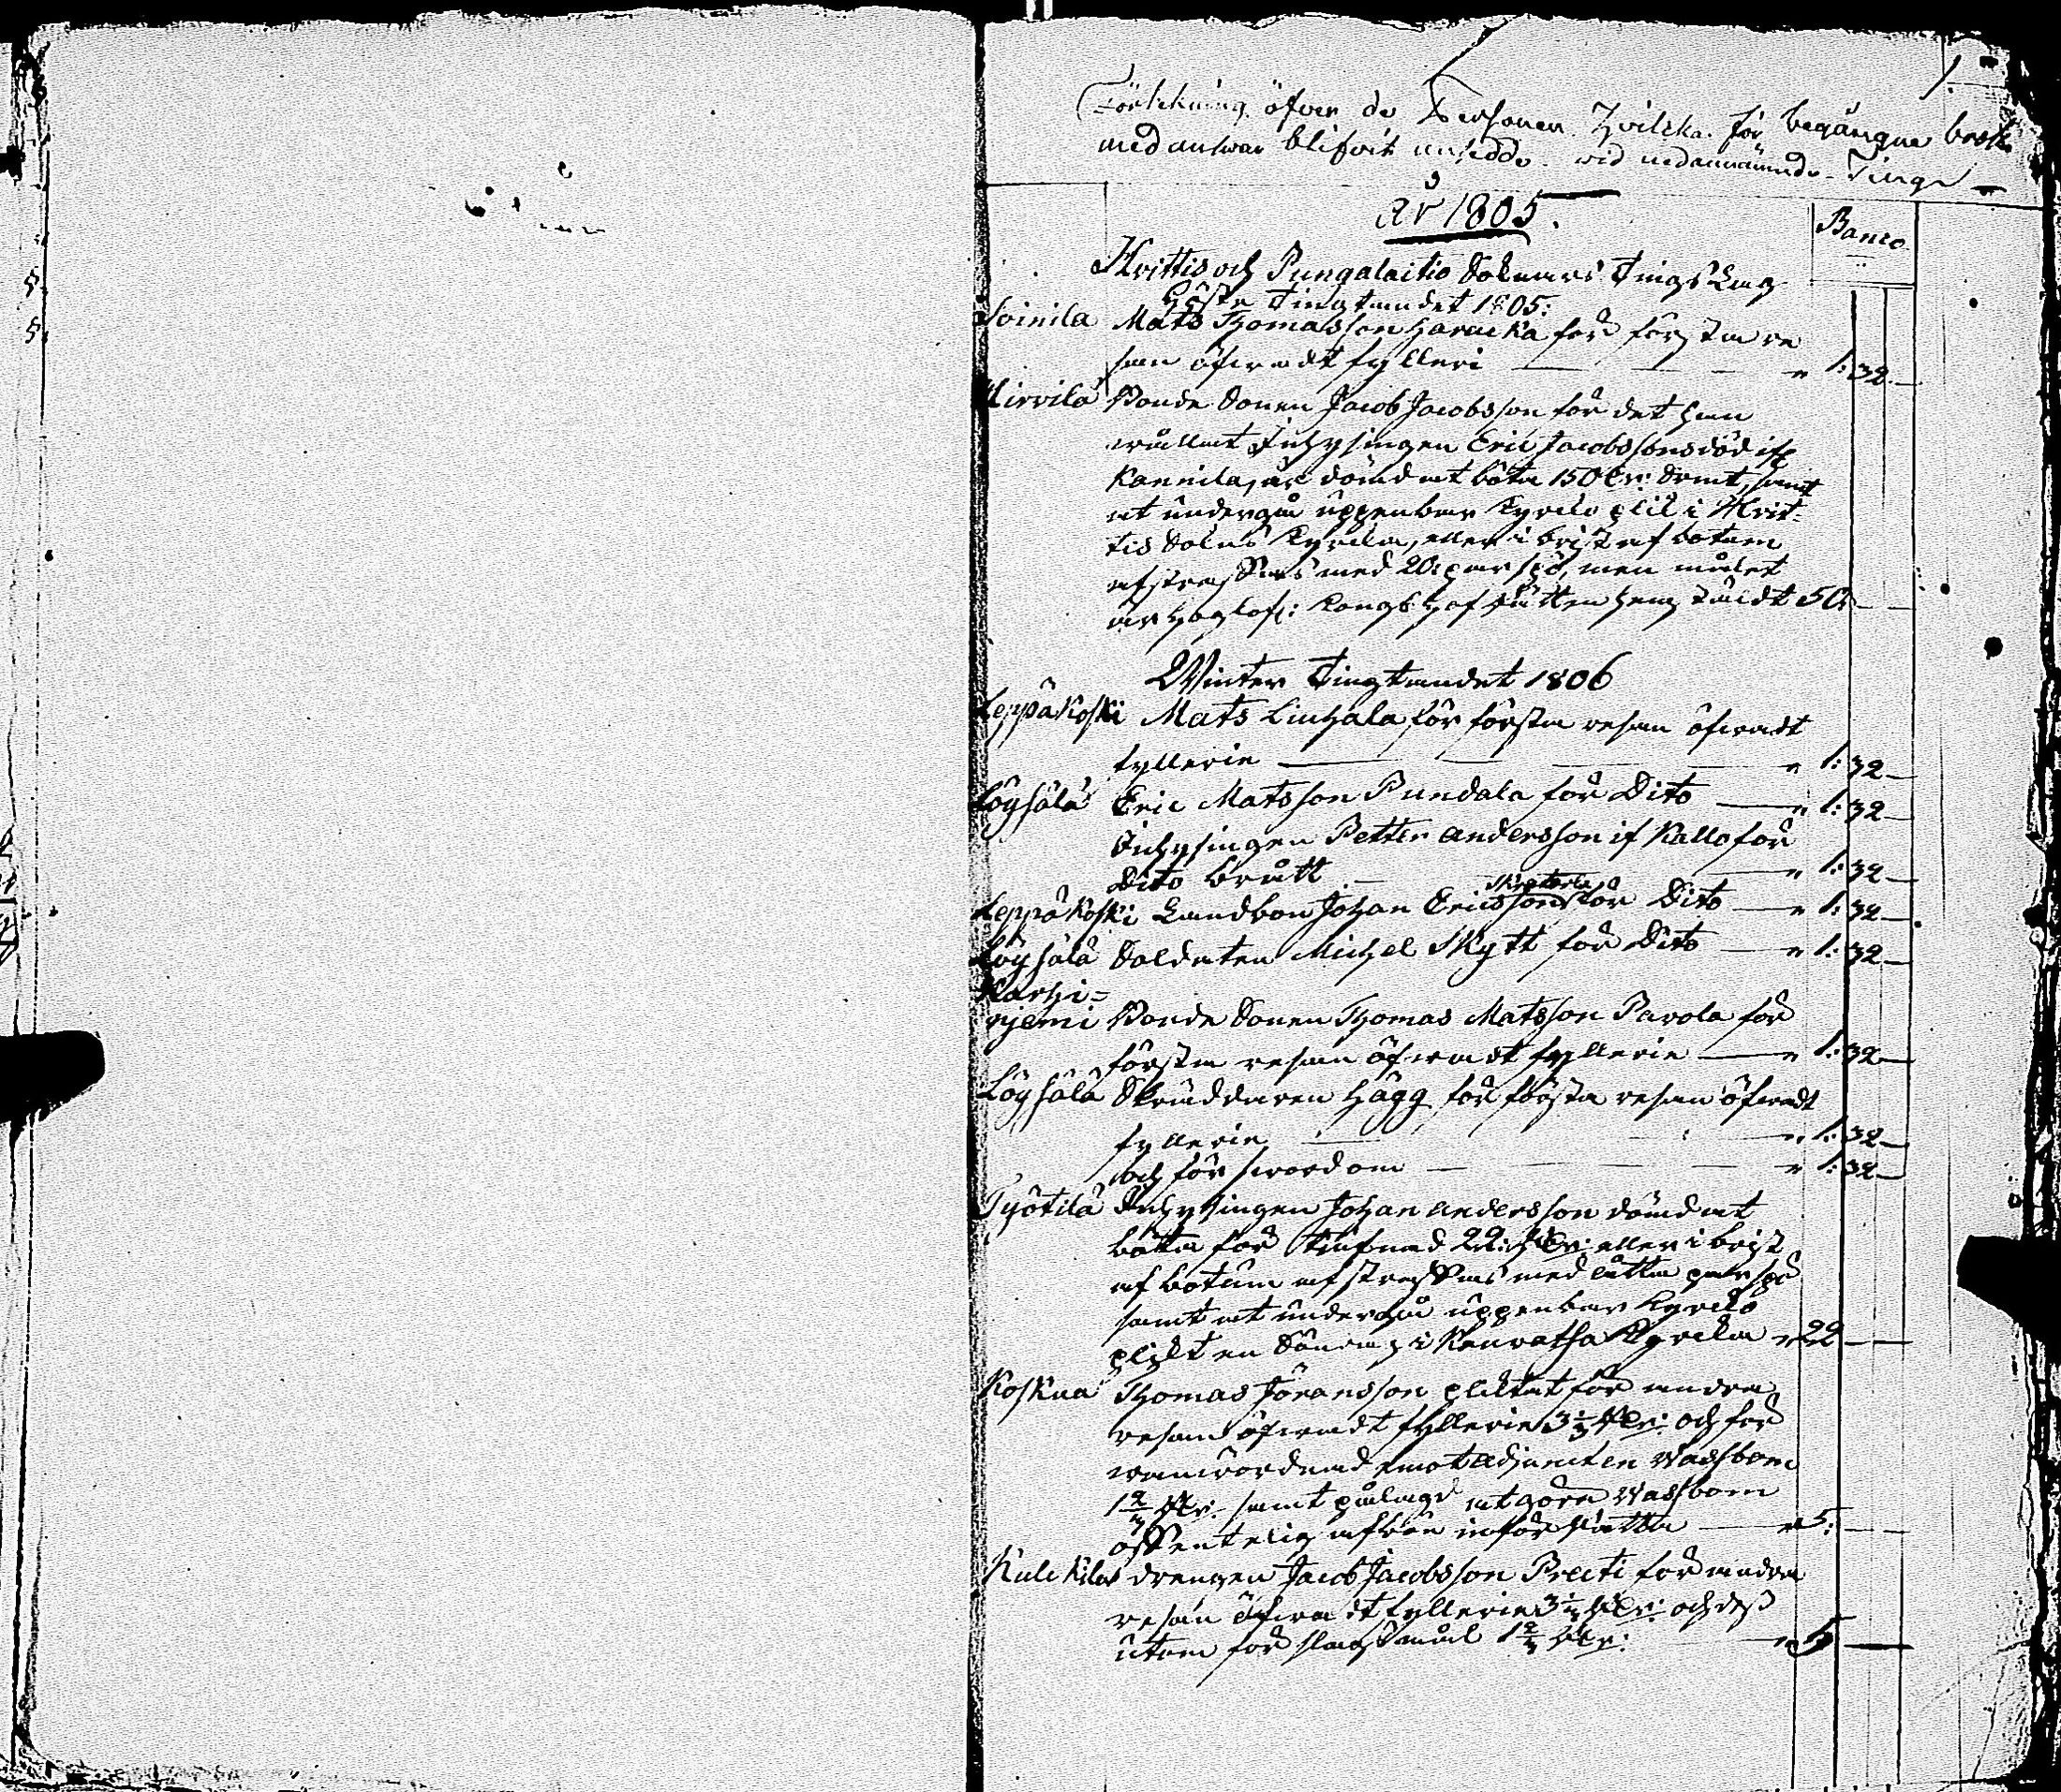 1.
Förtekning öfver de Personer hvilcka för begångne brott
med answar blifvit ansedde vid nedannämnde Ting
År 1805.
Banco
Hvittis och Pungalaitio Soknars Tings Lag
Höste Tingtundet 1805:
Soinila Mats Thomasson Haracka för första re
san öfwerdt fylleri — " 1:32.—
Hirvilä Bonde Sonen Jacob Jacobsson för det han
wållat Inhysingen Eric Jacobssons död ifr
Kannila, är dömd at böta 150 dr: Smt, samt
at undergå uppenbar Kyrko plikt i Hvit-
tis Sokns Kyrcka, eller i brist af botum
afstraffas med 20 par spö, men målet
är Höglofl: Kongl: Hof Rätten hemstäldt 50 —
Winter Tingtundet 1806
Leppäkoski Mats Linhala för första resan öfwerdt
fyllerie — " 1:32 —
Löysälä Eric Matsson Pundala för Dito — " 1:32 —
Inhysingen Petter Andersson if Kallo för
Dito brått — " 1:32 —
Leppäkoski Landbon Johan Ericsson för Dito — " 1:32 —
Löysälä Soldaten Michel Skytt för Dito — " 1:32 —
Karhi=
njemi Bonde Sonen Thomas Matsson Pavola för
första resan öfwerdt fyllerie — " 1:32 —
Löysälä Skräddaren Hägg för första resan öfwerdt
fyllerie — " 1:32 —
och för swordom — " 1:32 —
Työtilä Inhysingen Johan Andersson dömd at
böta för 22: Rdr: eller i brist
af botum afstraffas med åtta par spö
samt at undergå uppenbar Kyrko
plikt en Söndag i Keuvatsa Kyrcka " 22 —
Koskua Thomas Göransson pliktat för andra
resan öfwerdt fyllerie 3 1/3 Rdr: och för
wanwördnad emot Adjuncten Wassbom
Rdr: samt pålagd at göra Wassbom
offentelig afbön inför Rätta — " 5: —
Kulckila drengen Jacob Jacobsson Preiti för andra
resan öfwerdt fyllerie 3 1/3 Rdr: och dess
utom för slagsmål Rdr: — " 5 —